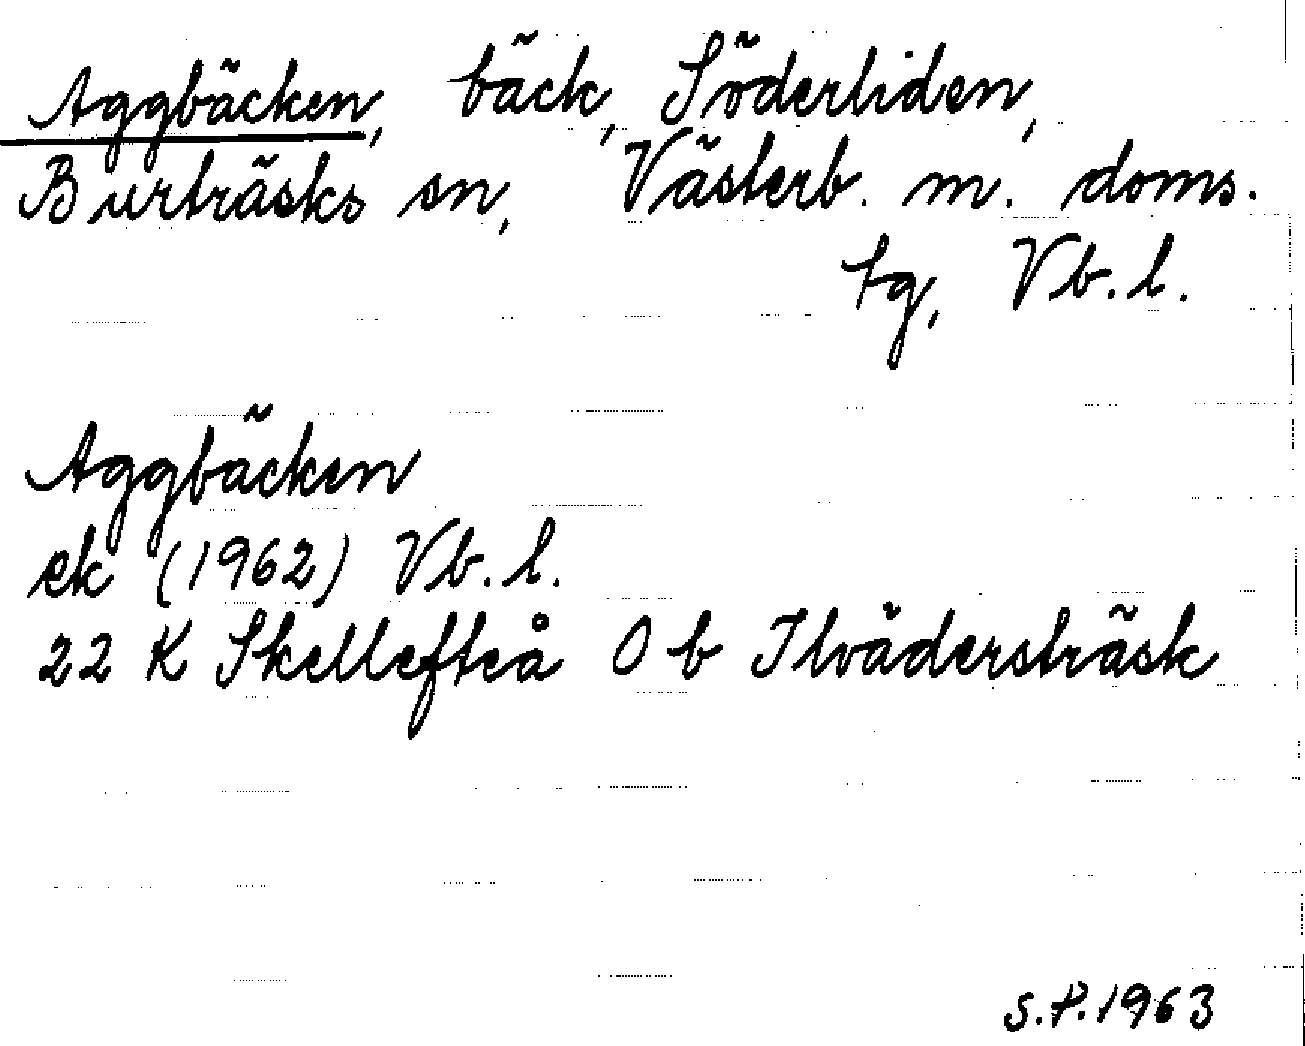 Aggbäcken, bäck, Söderliden,
Burträsks sn, Västerb. m. doms.
tg, Vb. l.
Aggbäcken
ek (1962) Vb. l.
22 K Skellefteå O b Ilvädersträsk
S.P. 1963